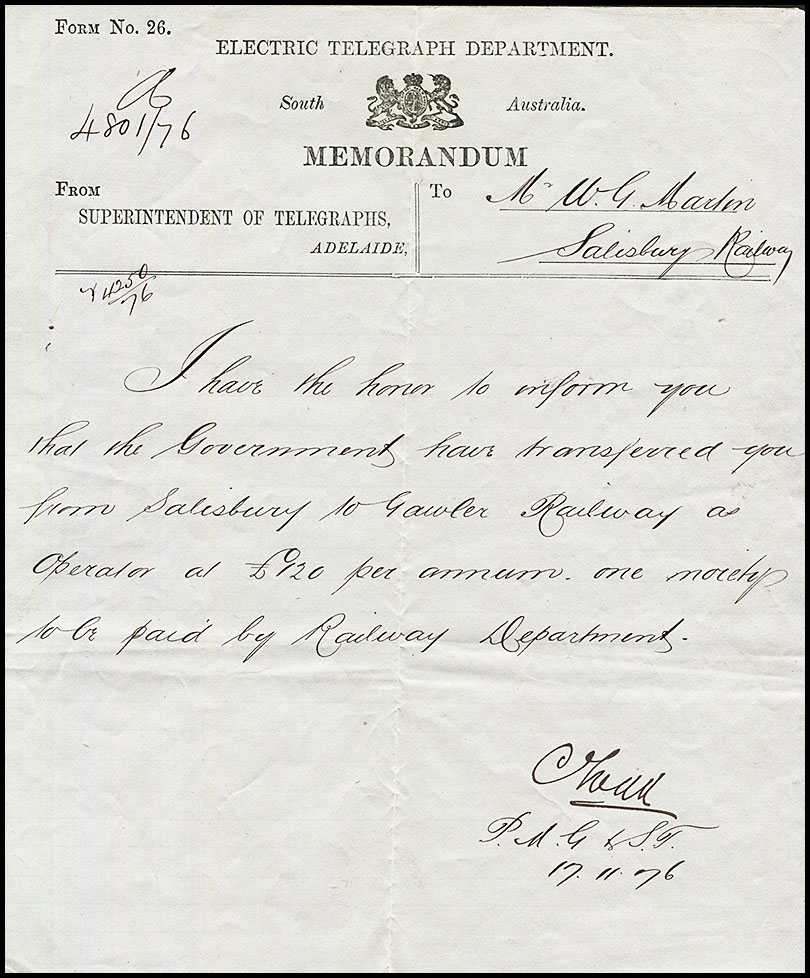 FORM NO. 26.
ELECTRIC TELEGRAPH DEPARTMENT.
South Australia.
4801/76
MEMORANDUM
FROM
SUPERINTENDENT OF TELEGRAPHS,
ADELAIDE,
To Mr W. G. Martin
Salisbury Railway
4250/76
I have the honor to inform you
that the Government have transferred you
from Salisbury to Gawler Railway as
Operator at £120 per annum. one moiety
to be paid by Railway Department.
C Todd
P. M. G & S. T.
17. 11. 76